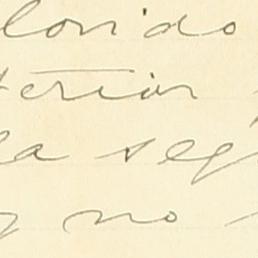 lorido
terior
la seg
y no